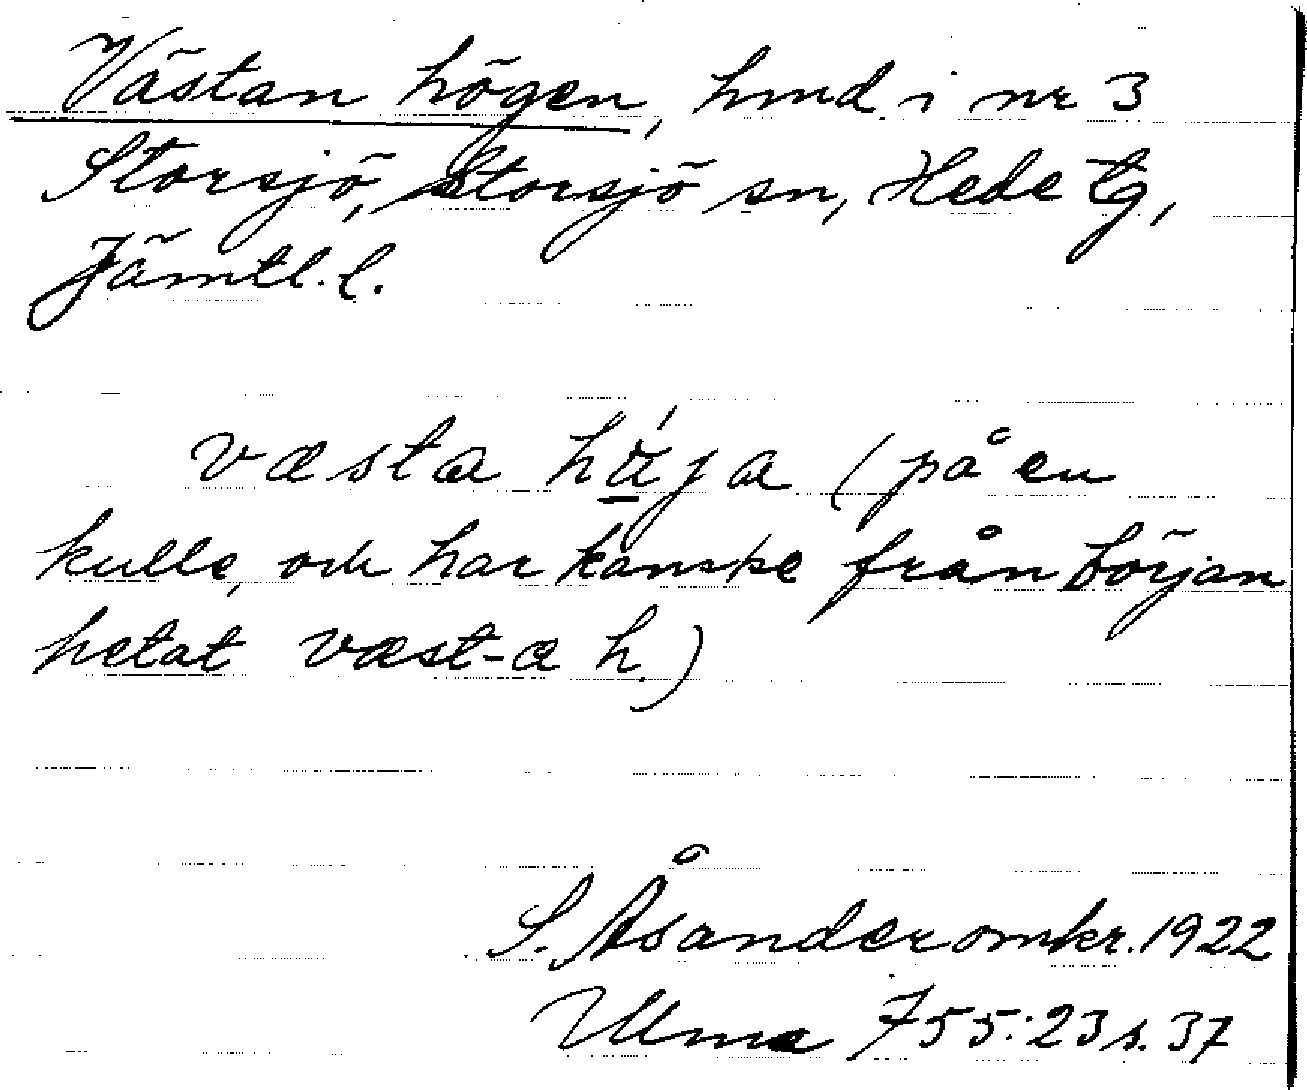 Västan högen, hmd i nr 3
Storsjö, Storsjö sn, Hede tg,
Jämtl. l.
væsta hája (på en
kulle, och har kanske från början
hetat væst-a h.)
S. Åsander omkr. 1922
Ulma 755:23 s. 37